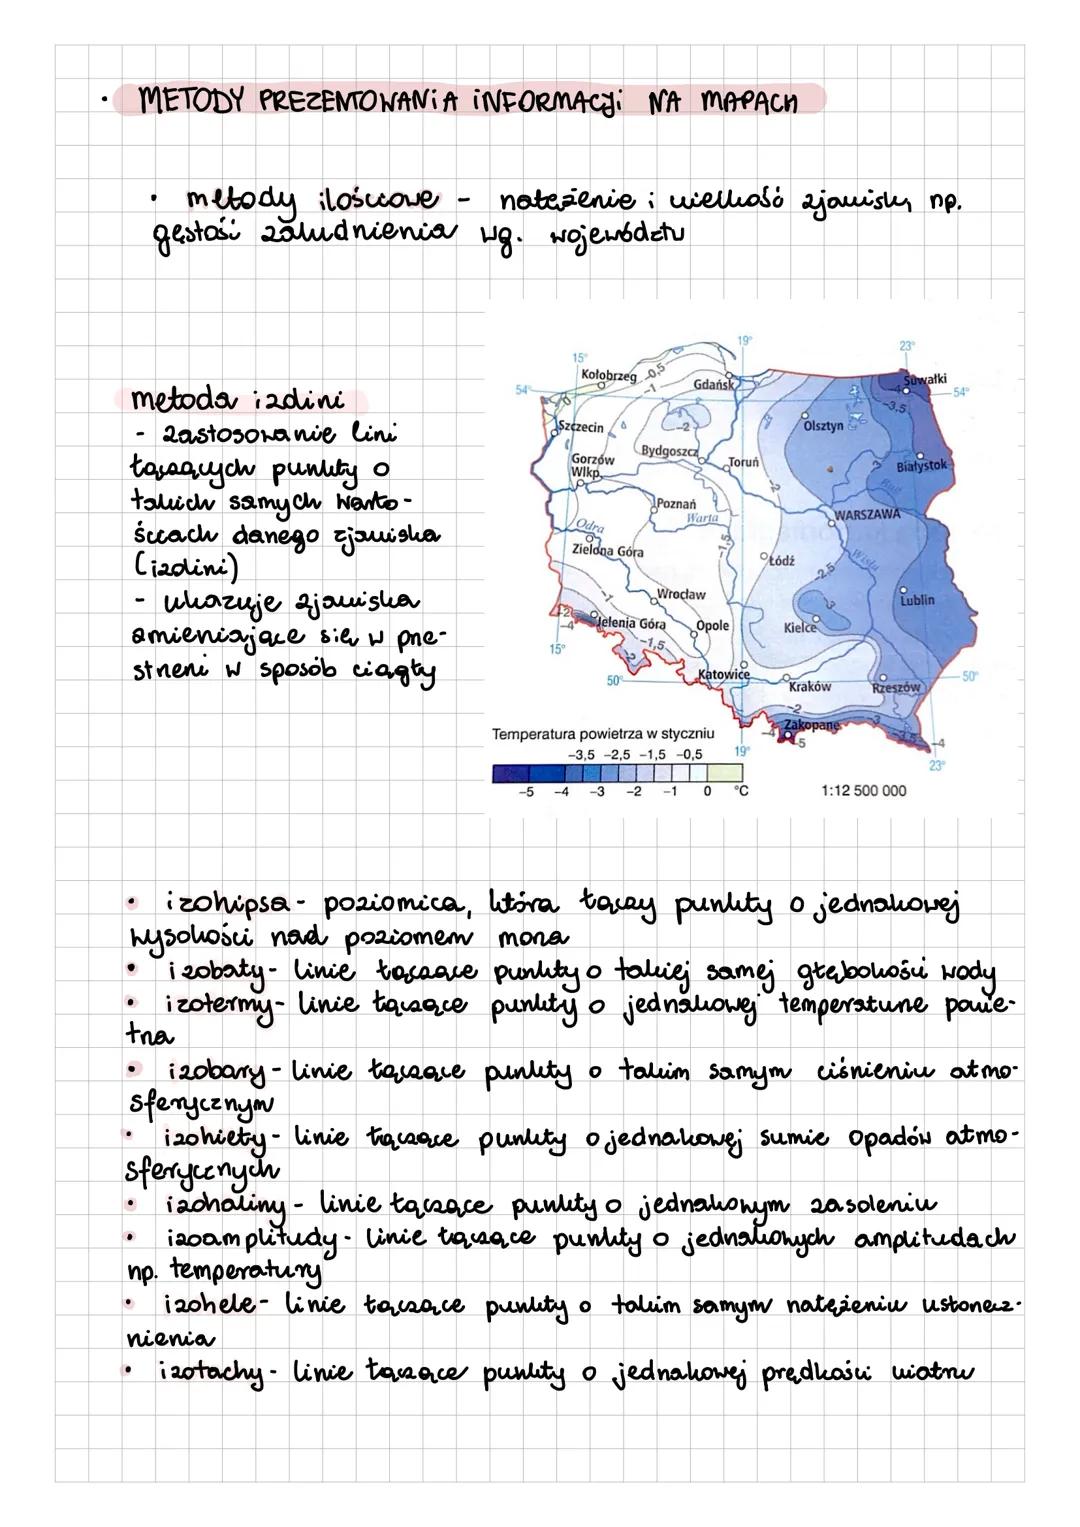 • METODY PREZENTOWANIA INFORMACJI NA MAPACH
• metody ilościowe - natężenie i wielkość zjawiska, np.
gęstość zaludnienia wg. województw
metoda izolini
- zastosowanie lini
łączących punkty o
takich samych warto-
ściach danego zjawiska
(izolini)
- ukazuje zjawiska
zmieniające się w prze-
strzeni w sposób ciągły
15° 19° 23°
54° Kołobrzeg -0,5 Gdańsk Suwałki 54°
0 -1 -4 -3,5
Szczecin -2 Olsztyn
Gorzów Wlkp. Bydgoszcz Toruń Białystok
-2 Bug
Poznań Warta WARSZAWA
Odra Zielona Góra -1,5 Łódź Wisła
-2,5
-1 Wrocław -3 Lublin
-2 -4 Jelenia Góra Opole Kielce
15° -1,5
-2 50° Katowice Kraków Rzeszów 50°
-2 -3
Zakopane -3,5 -4
-4 -5
19° 23°
Temperatura powietrza w styczniu
-3,5 -2,5 -1,5 -0,5
-5 -4 -3 -2 -1 0 °C
1:12 500 000
• izohipsa - poziomica, która łączy punkty o jednakowej
wysokości nad poziomem morza
• izobaty - linie łączące punkty o takiej samej głębokości wody
• izotermy - linie łączące punkty o jednakowej temperaturze powie-
trza
• izobary - linie łączące punkty o takim samym ciśnieniu atmo-
sferycznym
• izohiety - linie łączące punkty o jednakowej sumie opadów atmo-
sferycznych
• izohaliny - linie łączące punkty o jednakowym zasoleniu
• izoamplitudy - linie łączące punkty o jednakowych amplitudach
np. temperatury
• izohele - linie łączące punkty o takim samym natężeniu usłonecz-
nienia
• izotachy - linie łączące punkty o jednakowej prędkości wiatru